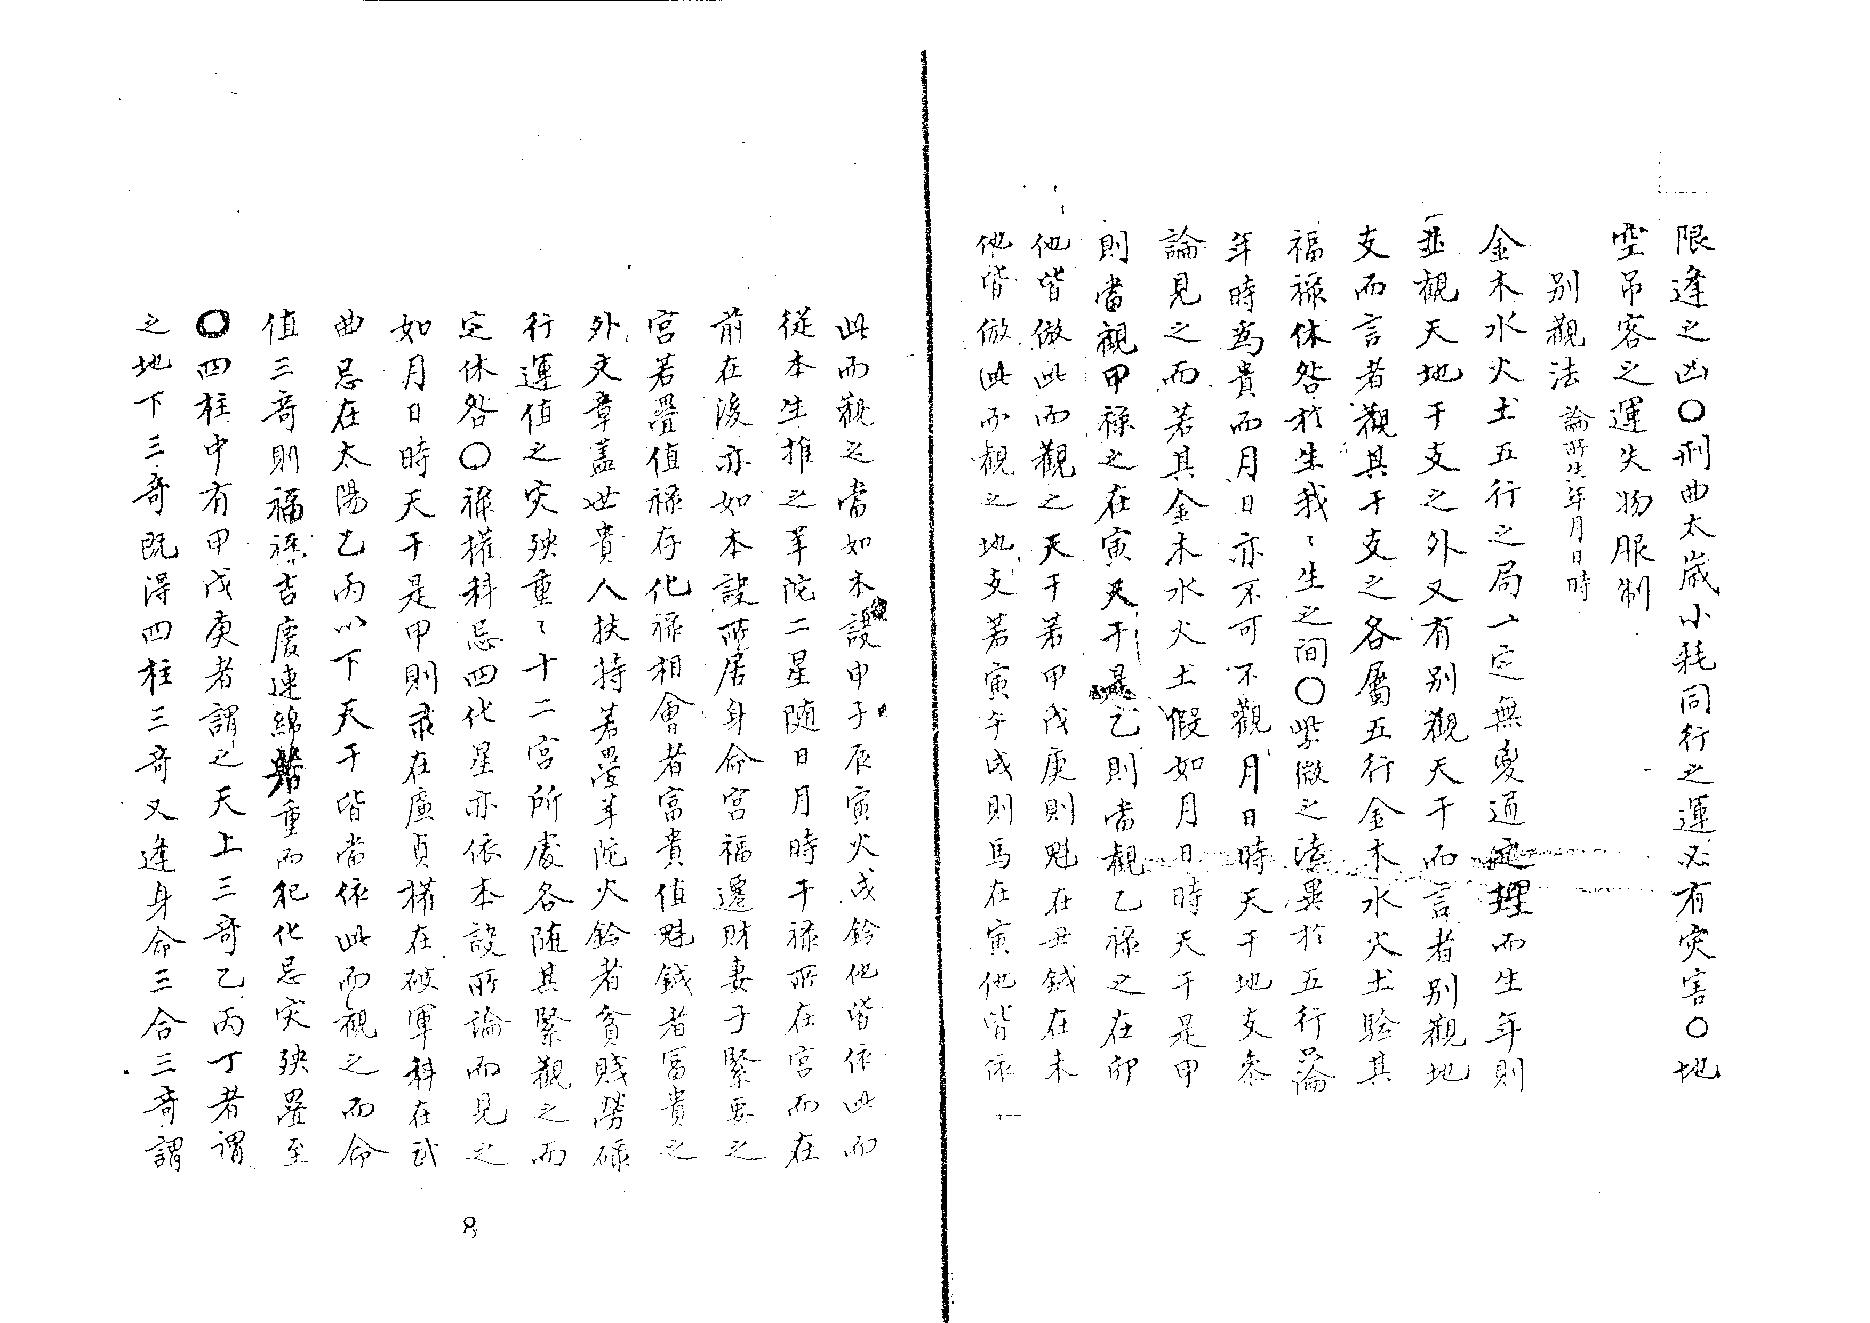 限逢之凶〇刑曲太歲小耗同行之運必有灾害〇地
空吊客之運失物服制
別觀法 論所生年月日時
金木水火土五行之局一定無變通之理而生年則
並觀天地干支之外又有別觀天干而言者別觀地
支而言者觀其干支之各屬五行金木水火土驗其
福祿休咎於生我〻生之間〇紫微之法異於五行論
年時爲貴而月日亦不可不觀月日時天干地支叅
論見之而若其金木水火土假如月日時天干是甲
則當觀甲祿之在寅天干是乙則當觀乙祿之在卯
他皆倣此而觀之天干若甲戊庚則魁在丑鉞在未
他皆倣此而觀之地支若寅午戌則馬在寅他皆依
此而觀之當如本設申子辰寅火戌鈴他皆依此而
從本生推之羊陀二星随日月時干祿所在宮而在
前在後亦如本設所居身命宮福遷財妻子緊要之
宮若疊值祿存化祿相會者富貴值魁鉞者富貴之
外文章盖世貴人扶持若疊羊陀火鈴者貧賤勞碌
行運值之灾殃重〻十二宮所處各随其緊觀之而
定休咎〇祿權科忌四化星亦依本設所論而見之
如月日時天干是甲則祿在廉貞權在破軍科在武
曲忌在太陽乙丙以下天干皆當依此而觀之而命
值三奇則福祿吉慶連綿重而犯化忌灾殃疊至
〇四柱中有甲戊庚者謂之天上三奇乙丙丁者謂
之地下三奇既得四柱三奇又逢身命三合三奇謂
8